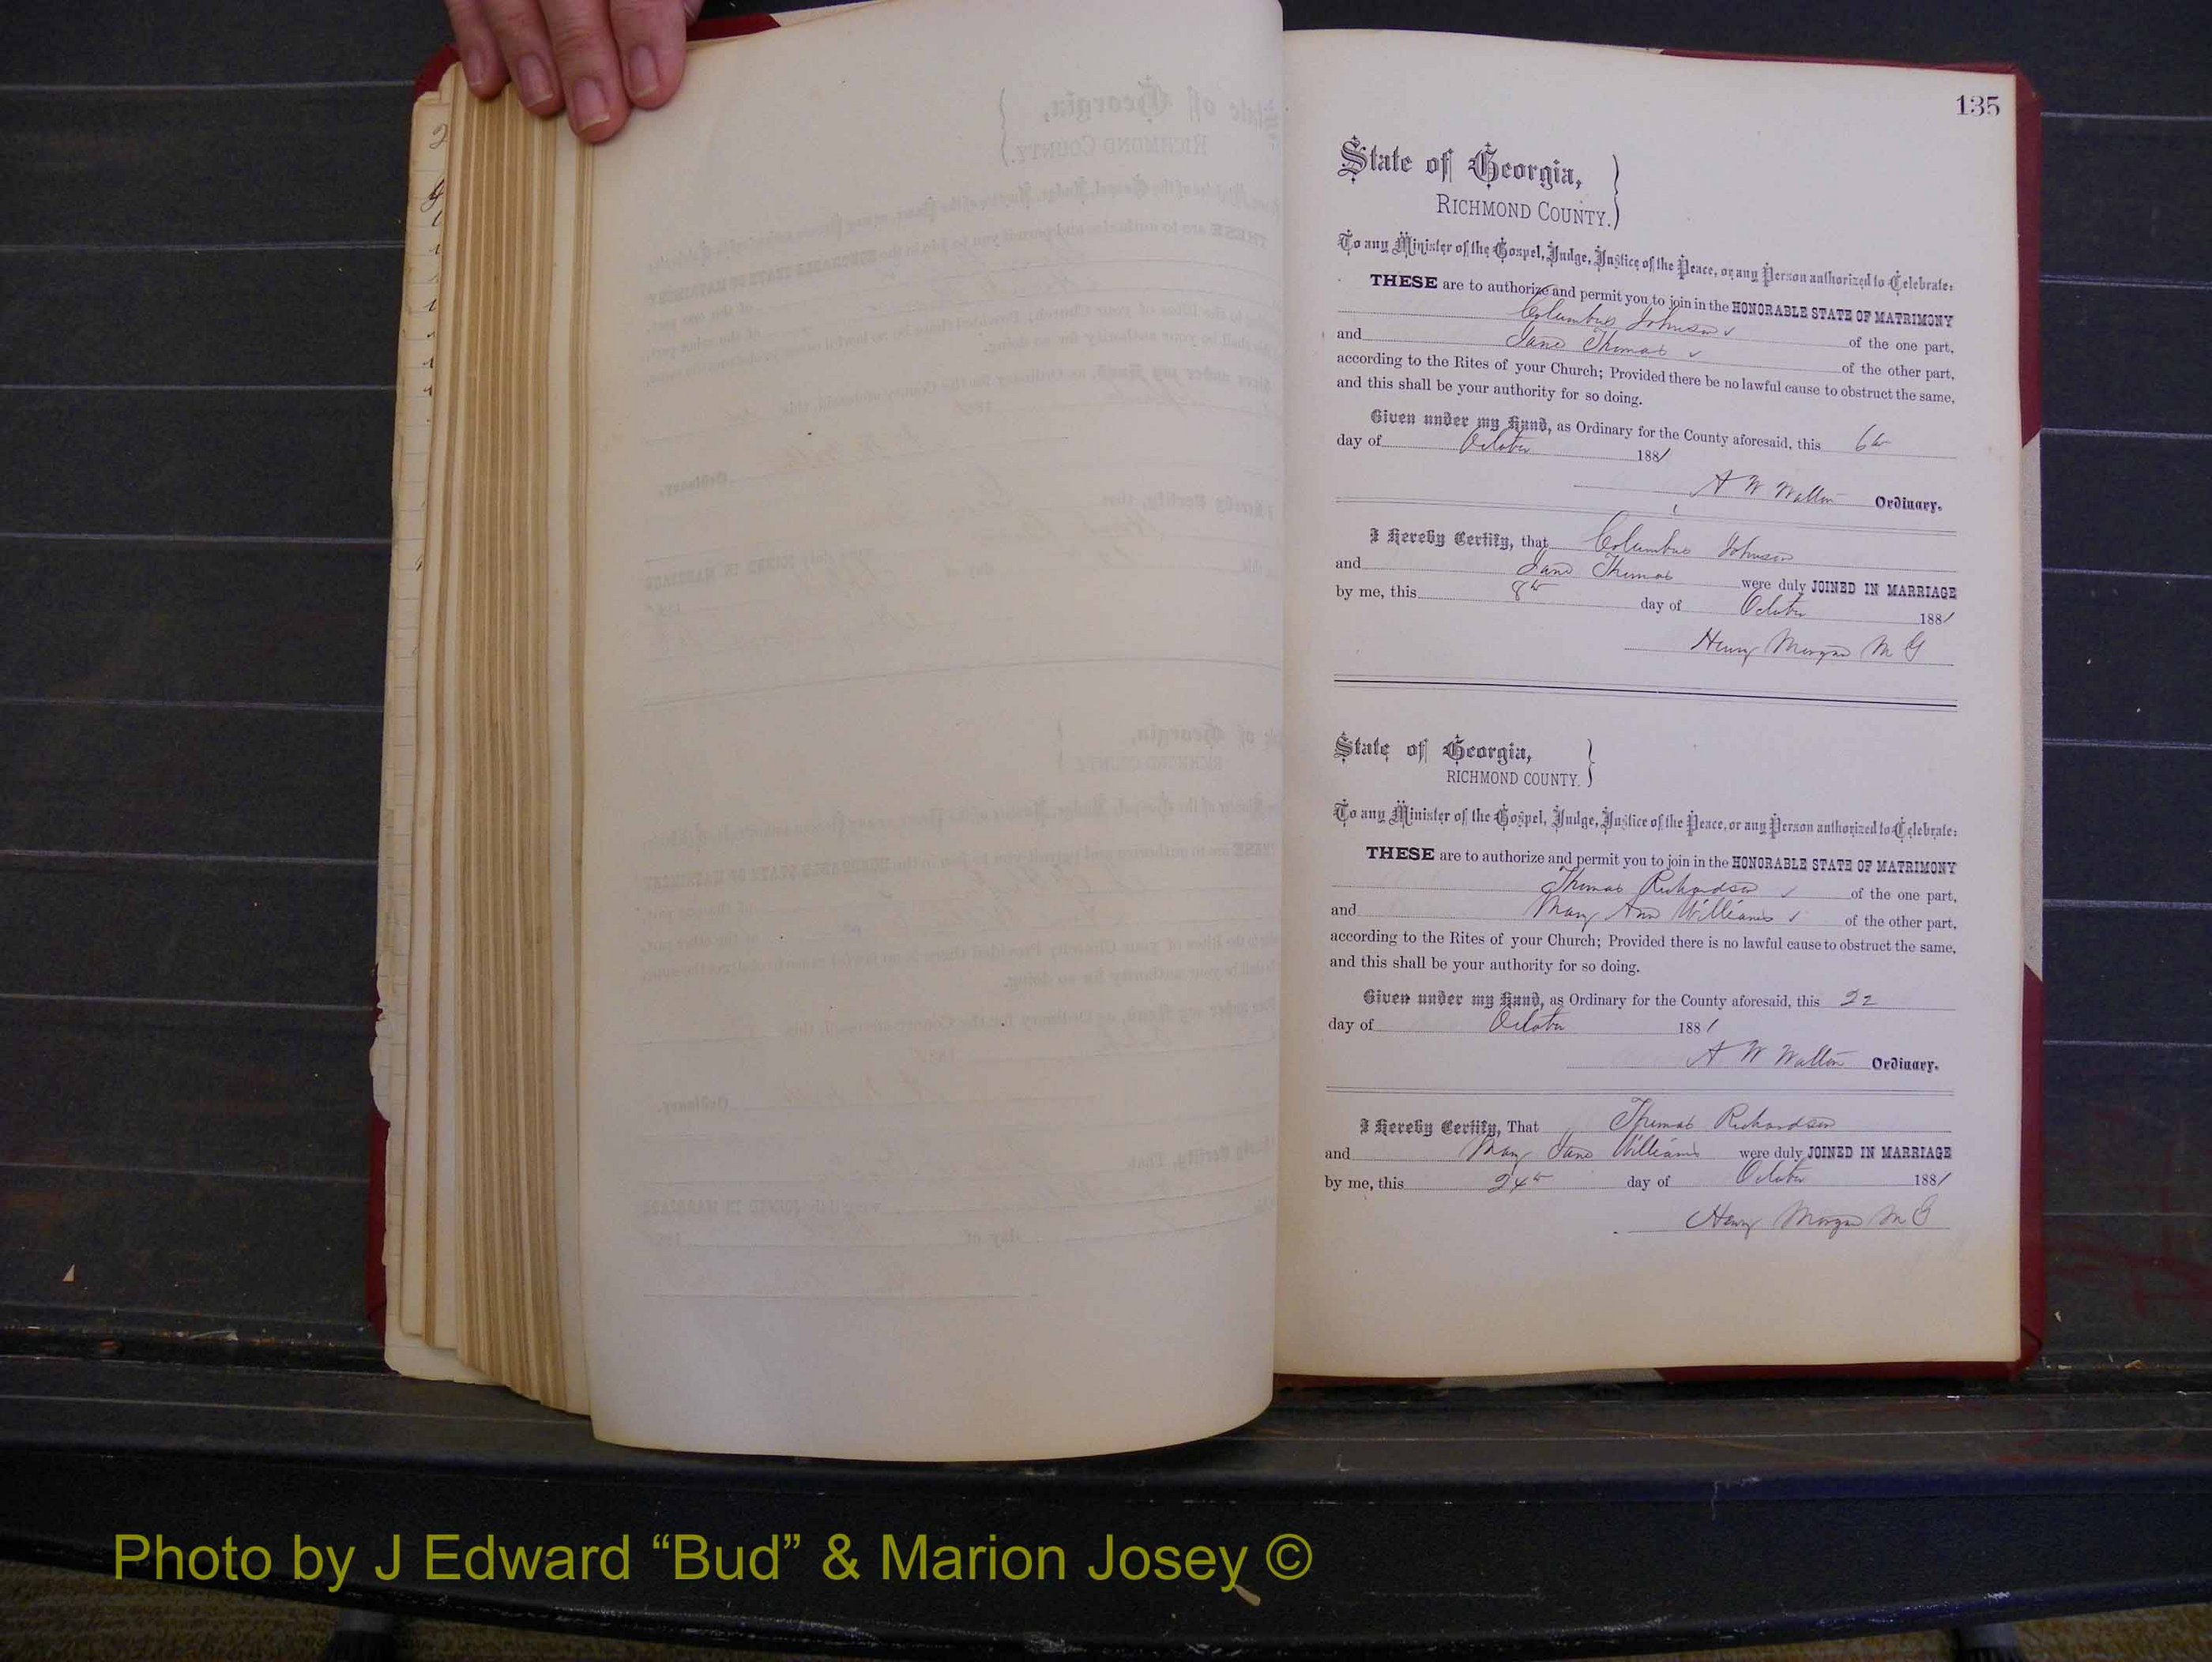 135
State of Georgia,
RICHMOND COUNTY.
To any Minister of the Gospel, Judge, Justice of the Peace, or any Person authorized to Celebrate:
THESE are to authorize and permit you to join in the HONORABLE STATE OF MATRIMONY
Columbus Johnson of the one part,
and Jane Thomas of the other part,
according to the Rites of your Church; Provided there be no lawful cause to obstruct the same,
and this shall be your authority for so doing.
Given under my Hand, as Ordinary for the County aforesaid, this 6th
day of October 1881
A W Walton Ordinary.
I Hereby Certify, that Columbus Johnson
and Jane Thomas were duly JOINED IN MARRIAGE
by me, this 8th day of October 1881
Henry Morgan M G
State of Georgia,
RICHMOND COUNTY.
To any Minister of the Gospel, Judge, Justice of the Peace, or any Person authorized to Celebrate:
THESE are to authorize and permit you to join in the HONORABLE STATE OF MATRIMONY
Thomas Richardson of the one part,
and Mary Ann Williams of the other part,
according to the Rites of your Church; Provided there is no lawful cause to obstruct the same,
and this shall be your authority for so doing.
Given under my Hand, as Ordinary for the County aforesaid, this 22
day of October 1881
A W Walton Ordinary.
I Hereby Certify, That Thomas Richardson
and Mary Jane Williams were duly JOINED IN MARRIAGE
by me, this 24th day of October 1881
Henry Morgan M G
Photo by J Edward “Bud” & Marion Josey ©